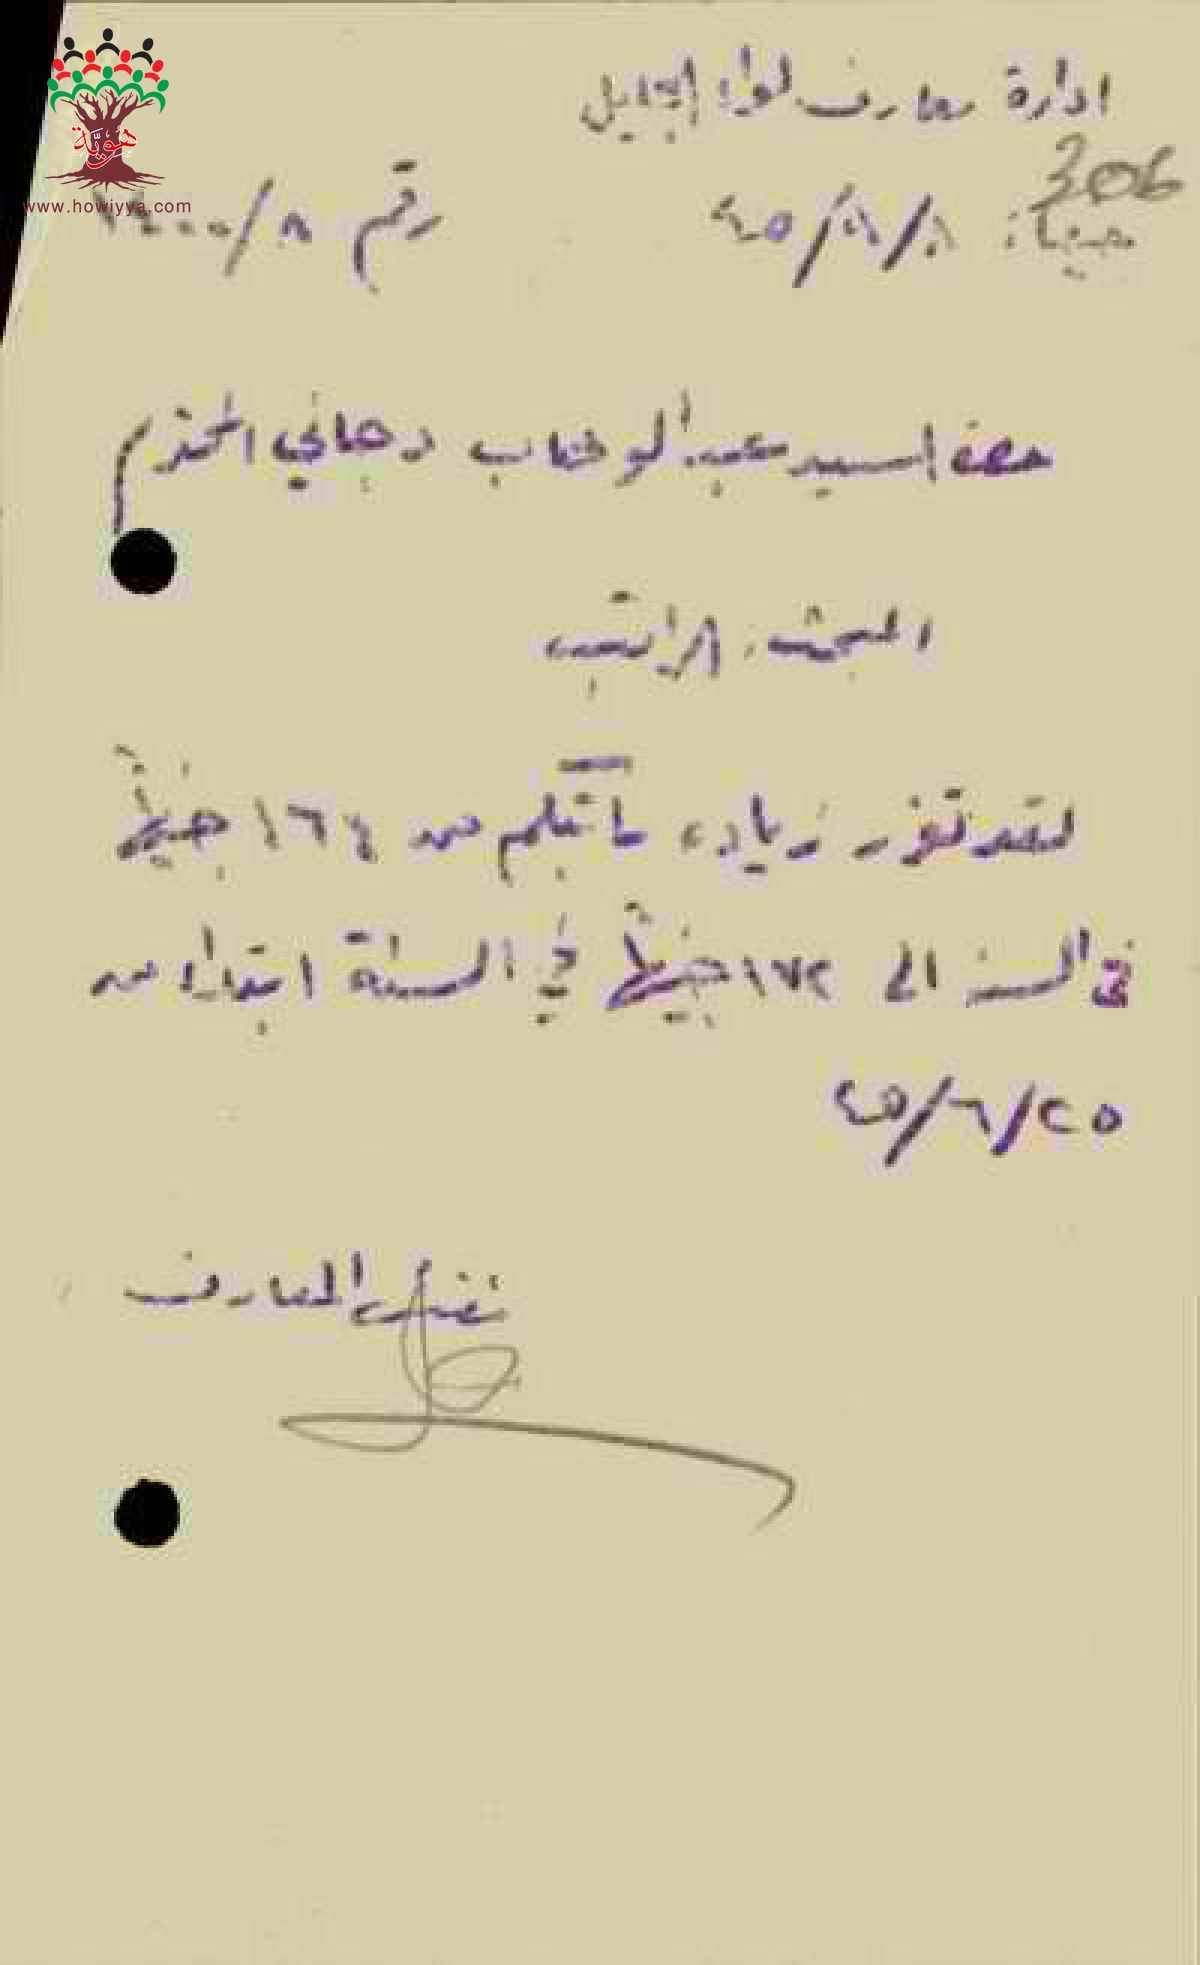 هوية
www.howiyya.com
ادارة معارف لواء الجليل
306
حيفا: ٨/٨/٤٥ رقم
حضرة السيد عبد الوهاب دجاني المحترم
المبحث: الراتب
لقد تقرر زيادة راتبكم من ١٦٤ جنيهاً
في السنة الى ١٧٢ جنيهاً في السنة ابتداء من
٤٥/٦/٢٥
مفتش المعارف